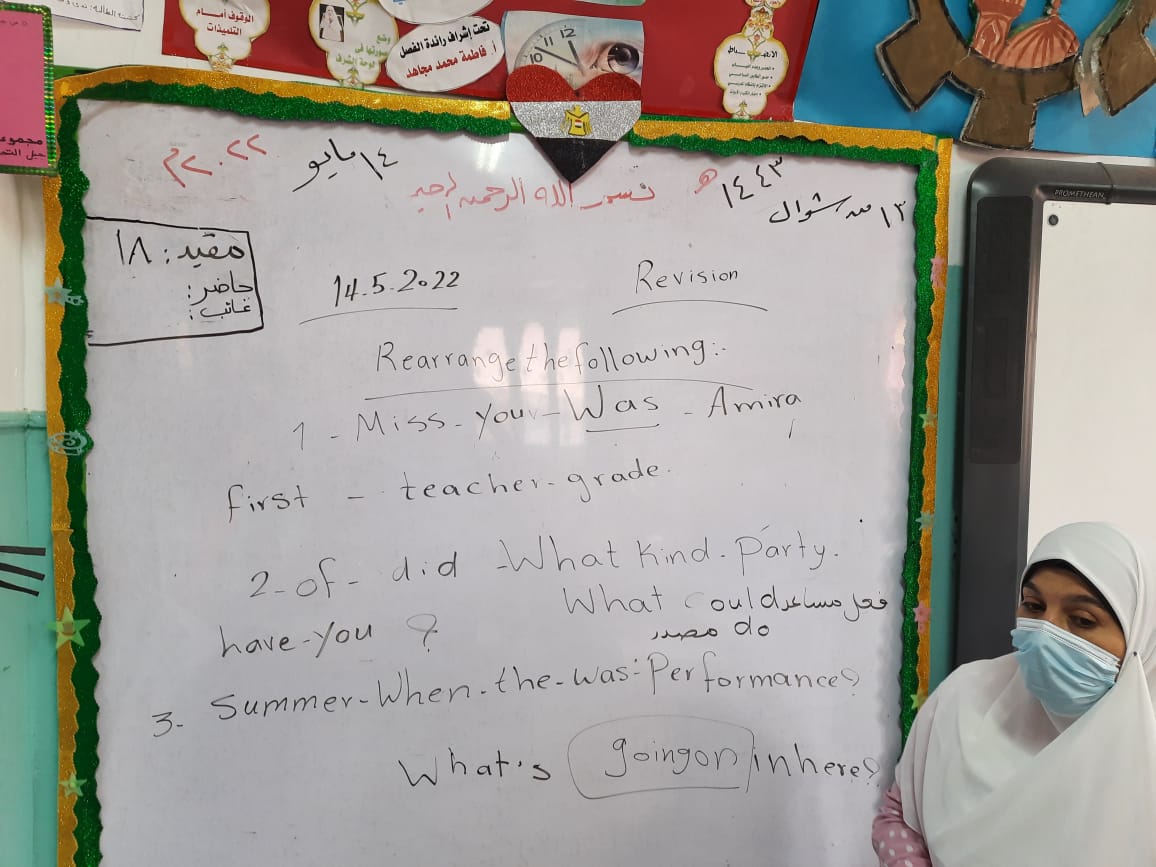 الوقوف أمام
التلميذات
تحت إشراف رائدة الفصل
أ. فاطمة محمد مجاهد
10 11 12
PROMETHEAN
١٣ من شوال ١٤٤٣ هـ
١٤ مايو ٢٠٢٢ م
بسم الله الرحمن الرحيم
مقيد: ١٨
حاضر:
غائب:
14.5.2022
Revision
Rearrange the following:-
1 - Miss - your - Was - Amira
first - teacher - grade.
2 - of - did - What Kind - Party.
What could فعل مساعد
have - you ?
do مصدر
3 - Summer - When - the - was - Performance?
What's going on in here?